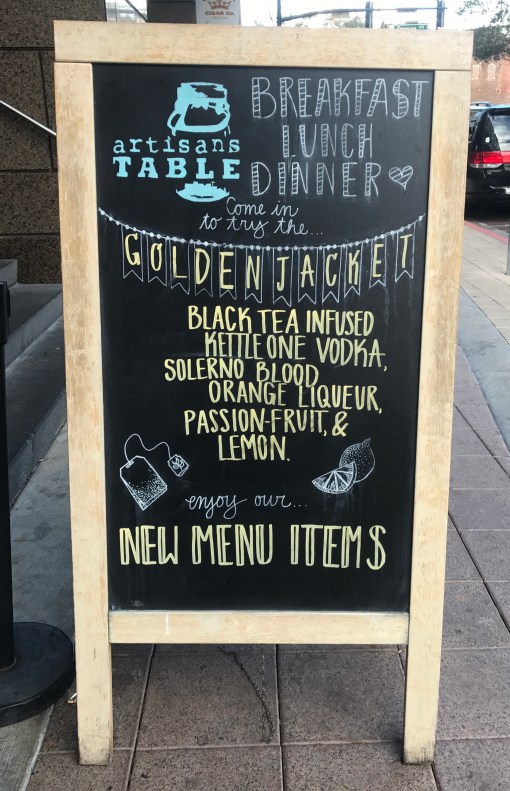 CIGAR CO.
artisans
TABLE
BREAKFAST
LUNCH
DINNER
Come in
to try the...
GOLDEN JACKET
BLACK TEA INFUSED
KETTLE ONE VODKA,
SOLERNO BLOOD
ORANGE LIQUEUR,
PASSION-FRUIT, &
LEMON.
enjoy our...
NEW MENU ITEMS